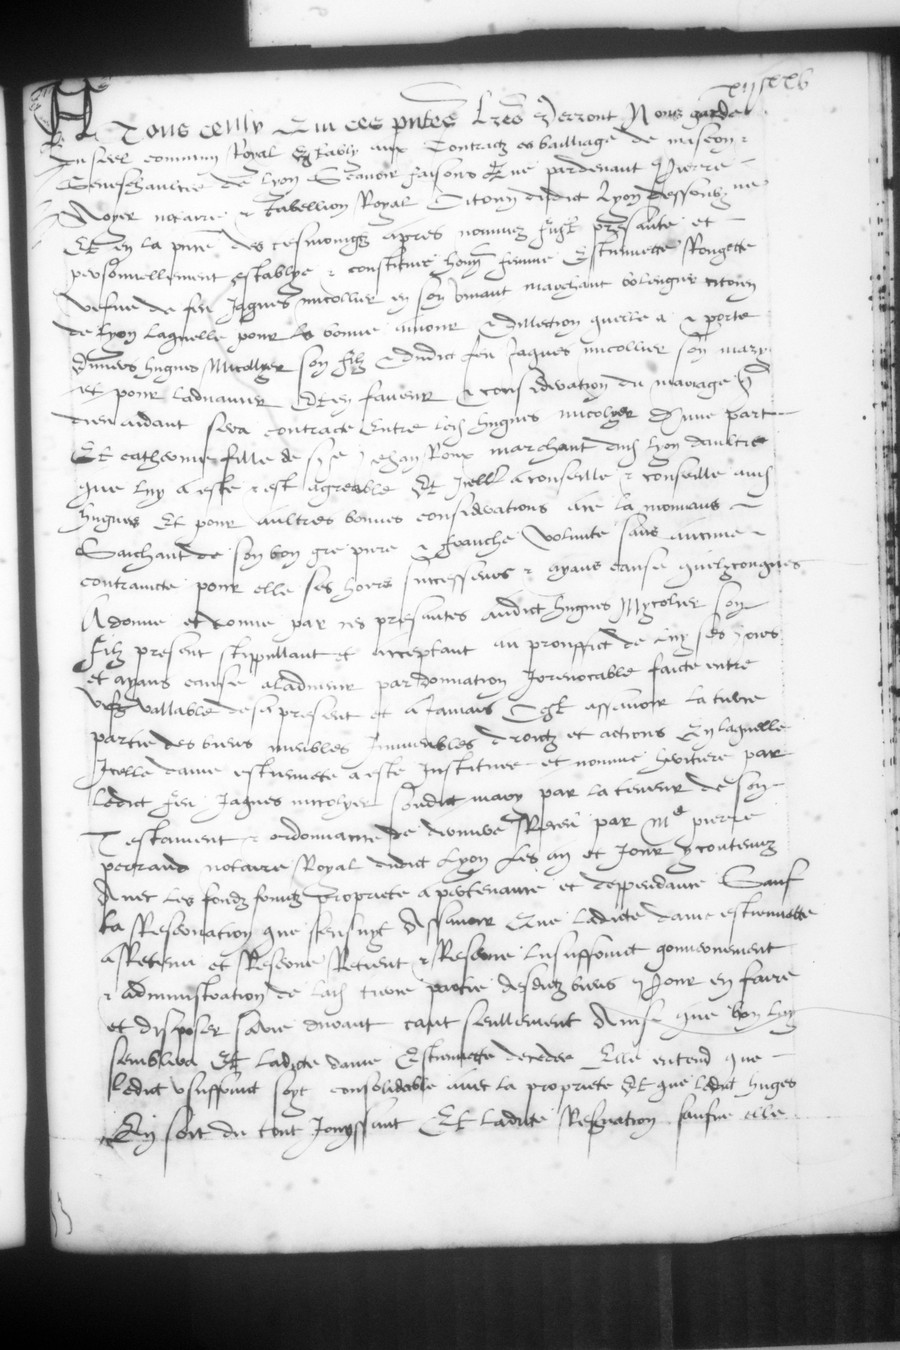 A Tous ceulx Qui ces pntes Lres verront Nous garde
du seel commun Royal Estably aux Contractz es bailliage de mascon &
Seneschaulcee de Lyon Scavoir faisons Que pardevant Pierre
Royer notaire & tabellion Royal Citoyen dudict Lyon dessoubz
Et en la pnce des tesmoingz apres nommez fust presante et
personnellement establye & constitue honne femme Estiennette Rougette
vefve de feu Jaques micollier en son vivant marchant bolengier citoien
de Lyon Laquelle pour la bonne amour & dillection quelle a & porte
Envers hugues Micollyer son filz & dudict feu Jaques micollier son mary
et pour ladvancer Et en faveur & consideration du mariage
dieu aidant sera contracte Entre led hugues micolyer Dune part
Et catherine fille de sire Jehan Roux marchant dud Lyon daultre
que luy a este & est agreable Et Icelle a conseille & conseille aud
hugues Et pour aultres bonnes considerations a ce la mouvans
Saichant de son bon gre pure & franche volunte sans aucune
contraincte pour elle ses hoirs successeurs & ayans cause quelzconques
A donne et donne par ces presantes audict hugues Mycolier son
filz present stippullant et acceptant au prouffict de luy ses hoirs
et ayans cause aladvenir par donnation Irrevocable faicte entre
vifz vallable des a present et a Jamais Cest assavoir la tierce
partie des biens meubles Immeubles droictz et actions En laquelle
Icelle dame estiennete a este Instituee et nomme heritiere par
ledict feu Jaques micolyer sondict mary par la teneur de son
Testament & ordonnance de derniere Receu par Me pierre
perraud notaire Royal dudict Lyon Les an et Jour y contenuz
Avec les fondz fruictz propriete apartenance et deppendance Sauf
La Reservation que sensuyt Assavoir Que ladicte dame estiennette
a Retenu et Reserve Retient & Reserve Lusuffruict gouvernement
& administration de lad tierce partie desditz biens pour en faire
et disposer sa vie durant tant seullement Ainsi que bon luy
semblera Et ladicte dame Estiennette decedee Elle entend que
ledict usuffruict soyt consolidable avec la propriete Et que ledict huges
En soit du tout Jouyssant Et ladicte Reservation saufve elle